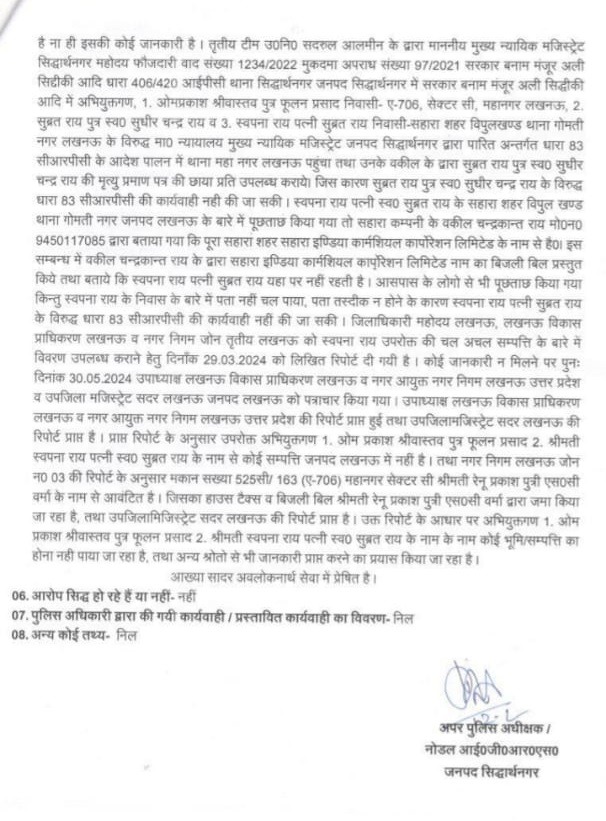 है ना ही इसकी कोई जानकारी है । तृतीय टीम उ0नि0 सदरुल आलमीन के द्वारा माननीय मुख्य न्यायिक मजिस्ट्रेट
सिद्धार्थनगर महोदय फौजदारी वाद संख्या 1234/2022 मुकदमा अपराध संख्या 97/2021 सरकार बनाम मंजूर अली
सिद्दीकी आदि धारा 406/420 आईपीसी थाना सिद्धार्थनगर जनपद सिद्धार्थनगर में सरकार बनाम मंजूर अली सिद्दीकी
आदि में अभियुक्तगण, 1. ओमप्रकाश श्रीवास्तव पुत्र फूलन प्रसाद निवासी- ए-706, सेक्टर सी, महानगर लखनऊ, 2.
सुब्रत राय पुत्र स्व0 सुधीर चन्द्र राय व 3. स्वपना राय पत्नी सुब्रत राय निवासी-सहारा शहर विपुलखण्ड थाना गोमती
नगर लखनऊ के विरुद्ध मा0 न्यायालय मुख्य न्यायिक मजिस्ट्रेट जनपद सिद्धार्थनगर द्वारा पारित अन्तर्गत धारा 83
सीआरपीसी के आदेश पालन में थाना महा नगर लखनऊ पहुंचा तथा उनके वकील के द्वारा सुब्रत राय पुत्र स्व0 सुधीर
चन्द्र राय की मृत्यु प्रमाण पत्र की छाया प्रति उपलब्ध कराये। जिस कारण सुब्रत राय पुत्र स्व0 सुधीर चन्द्र राय के विरुद्ध
धारा 83 सीआरपीसी की कार्यवाही नही की जा सकी । स्वपना राय पत्नी स्व0 सुब्रत राय के सहारा शहर विपुल खण्ड
थाना गोमती नगर जनपद लखनऊ के बारे में पूछताछ किया गया तो सहारा कम्पनी के वकील चन्द्रकान्त राय मो0न0
9450117085 द्वारा बताया गया कि पूरा सहारा शहर सहारा इण्डिया कार्मशियल कार्पोरेशन लिमिटेड के नाम से है0। इस
सम्बन्ध में वकील चन्द्रकान्त राय के द्वारा सहारा इण्डिया कार्मशियल कार्पोरेशन लिमिटेड नाम का बिजली बिल प्रस्तुत
किये तथा बताये कि स्वपना राय पत्नी सुब्रत राय यहा पर नहीं रहती है । आसपास के लोगो से भी पूछताछ किया गया
किन्तु स्वपना राय के निवास के बारे में पता नहीं चल पाया, पता तस्दीक न होने के कारण स्वपना राय पत्नी सुब्रत राय
के विरुद्ध 83 सीआरपीसी की कार्यवाही नहीं की जा सकी । जिलाधिकारी महोदय लखनऊ, लखनऊ विकास
प्राधिकरण लखनऊ व नगर निगम जोन तृतीय लखनऊ को स्वपना राय उपरोक्त की चल अचल सम्पत्ति के बारे में
विवरण उपलब्ध कराने हेतु दिनाँक 29.03.2024 को लिखित रिपोर्ट दी गयी है । कोई जानकारी न मिलने पर पुनः
दिनांक 30.05.2024 उपाध्याक्ष लखनऊ विकास प्राधिकरण लखनऊ व नगर आयुक्त नगर निगम लखनऊ उत्तर प्रदेश
व उपजिला मजिस्ट्रेट सदर लखनऊ जनपद लखनऊ को पत्राचार किया गया। उपाध्याक्ष लखनऊ विकास प्राधिकरण
लखनऊ व नगर आयुक्त नगर निगम लखनऊ उत्तर प्रदेश की रिपोर्ट प्राप्त हुई तथा उपजिलामजिस्ट्रेट सदर लखनऊ की
रिपोर्ट प्राप्त है । प्राप्त रिपोर्ट के अनुसार उपरोक्त अभियुक्तगण 1. ओम प्रकाश श्रीवास्तव पुत्र फूलन प्रसाद 2. श्रीमती
स्वपना राय पत्नी स्व0 सुब्रत राय के नाम से कोई सम्पत्ति जनपद लखनऊ में नही है । तथा नगर निगम लखनऊ जोन
न0 03 की रिपोर्ट के अनुसार मकान संख्या 525सी/ 163 (ए-706) महानगर सेक्टर सी श्रीमती रेनू प्रकाश पुत्री एस0सी
वर्मा के नाम से आवंटित है । जिसका हाउस टैक्स व बिजली बिल श्रीमती रेनू प्रकाश पुत्री एस0सी वर्मा द्वारा जमा किया
जा रहा है, तथा उपजिलामिजिस्ट्रेट सदर लखनऊ की रिपोर्ट प्राप्त है । उक्त रिपोर्ट के आधार पर अभियुक्तगण 1. ओम
प्रकाश श्रीवास्तव पुत्र फूलन प्रसाद 2. श्रीमती स्वपना राय पत्नी स्व0 सुब्रत राय के नाम के नाम कोई भूमि/सम्पत्ति का
होना नही पाया जा रहा है, तथा अन्य श्रोतो से भी जानकारी प्राप्त करने का प्रयास किया जा रहा है ।
आख्या सादर अवलोकनार्थ सेवा में प्रेषित है ।
06. आरोप सिद्ध हो रहे हैं या नहीं- नहीं
07. पुलिस अधिकारी द्वारा की गयी कार्यवाही / प्रस्तावित कार्यवाही का विवरण- निल
08. अन्य कोई तथ्य- निल
अपर पुलिस अधीक्षक /
नोडल आई0जी0आर0एस0
जनपद सिद्धार्थनगर